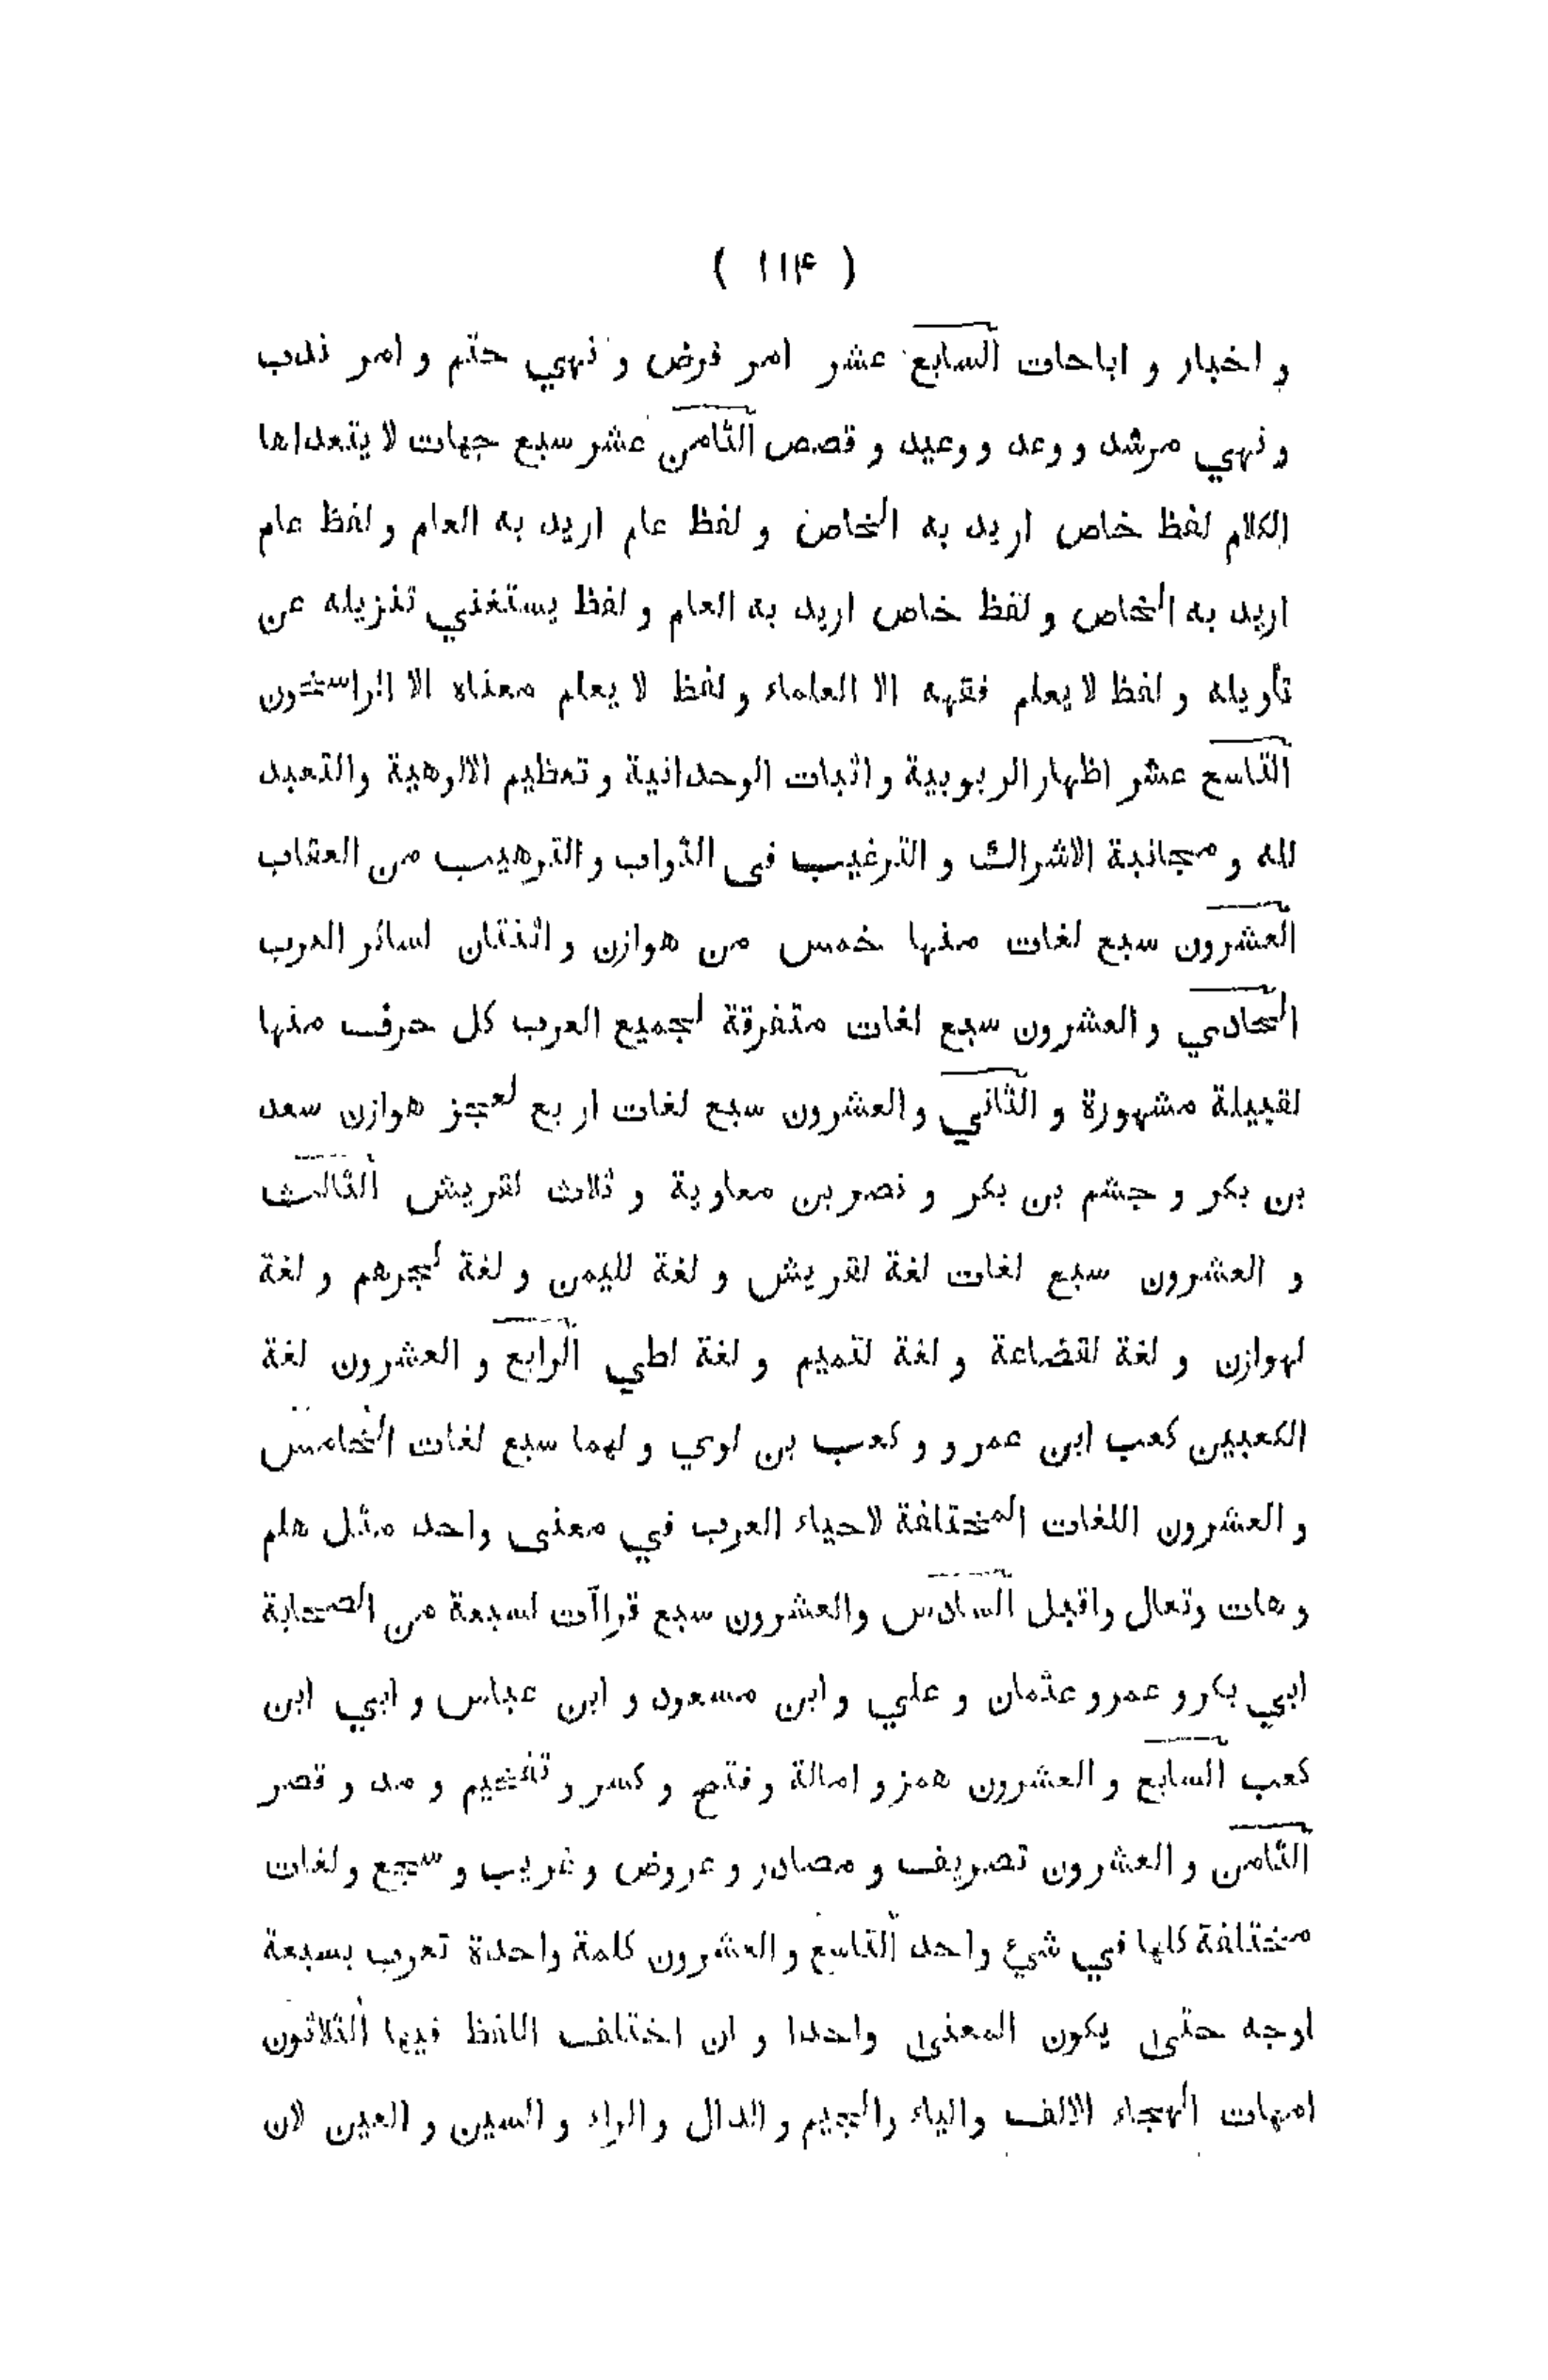 ( ۱۱۴ )
و اخبار و اباحات السابع عشر امر فرض و نهي حتم و امر ندب
و نهي مرشد و وعد و وعيد و قصص الثامن عشر سبع جهات لا يتعداها
الكلام لفظ خاص اريد به الخاص و لفظ عام اريد به العام و لفظ عام
اريد به الخاص و لفظ خاص اريد به العام و لفظ يستغني تنزيله عن
تأويله و لفظ لا يعلم فقهه الا العلماء و لفظ لا يعلم معناه الا الراسخون
التاسع عشر اظهار الربوبية و اثبات الوحدانية و تعظيم الالوهية والتعبد
لله و مجانبة الاشراك و الترغيب فى الثواب و الترهيب من العقاب
العشرون سبع لغات منها خمس من هوازن و اثنتان لسائر العرب
الحادي و العشرون سبع لغات متفرقة لجميع العرب كل حرف منها
لقبيلة مشهورة و الثاني و العشرون سبع لغات اربع لعجز هوازن سعد
بن بكر و جشم بن بكر و نصر بن معاوية و ثلاث لقريش الثالث
و العشرون سبع لغات لغة لقريش و لغة لليمن و لغة لجرهم و لغة
لهوازن و لغة لقضاعة و لغة لتميم و لغة لطي الرابع و العشرون لغة
الكعبين كعب ابن عمرو و كعب بن لوي و لهما سبع لغات الخامس
و العشرون اللغات المختلفة لاحياء العرب في معنى واحد مثل هلم
و هات وتعال واقبل السادس والعشرون سبع قراآت لسبعة من الصحابة
ابي بكر و عمر و عثمان و علي و ابن مسعود و ابن عباس و ابي ابن
كعب السابع و العشرون همز و امالة و فتح و كسر و تفخيم و مد و قصر
الثامن و العشرون تصريف و مصادر و عروض و غريب و سجع و لغات
مختلفة كلها في شيء واحد التاسع و العشرون كلمة واحدة تعرب بسبعة
اوجه حتى يكون المعنى واحدا و ان اختلف اللفظ فيها الثلاثون
امهات الهجاء الالف والباء والجيم و الدال و الراء و السين و العين لان